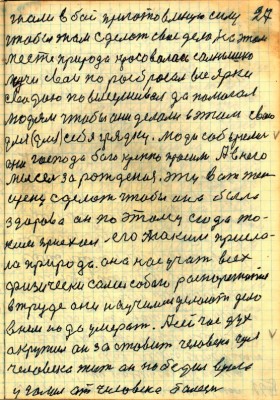 27
в бой приготовленую силу
чтобы там сделат свае дела на этом
месте природа красовалас солнышко
лучи сваи по разбросал все ярки
свадою повысушивал да помогал
людям чтобы они делали в этим сваю
для (для) себя грядку. люди
они господа бога крепко просили А в него
мысел зарождения. эту ват тему
сцену сделат чтобы она была
здарова он поэтому сюда
приехал его таким присла-
ла природа. она научат всех
физически самих собою распоряжатся
в труде они научилис делат дело
в нем но да умерат. А сейчас дух
окружил он заставит человека для
человека жит он победил врага
у гонил ат человека балезн